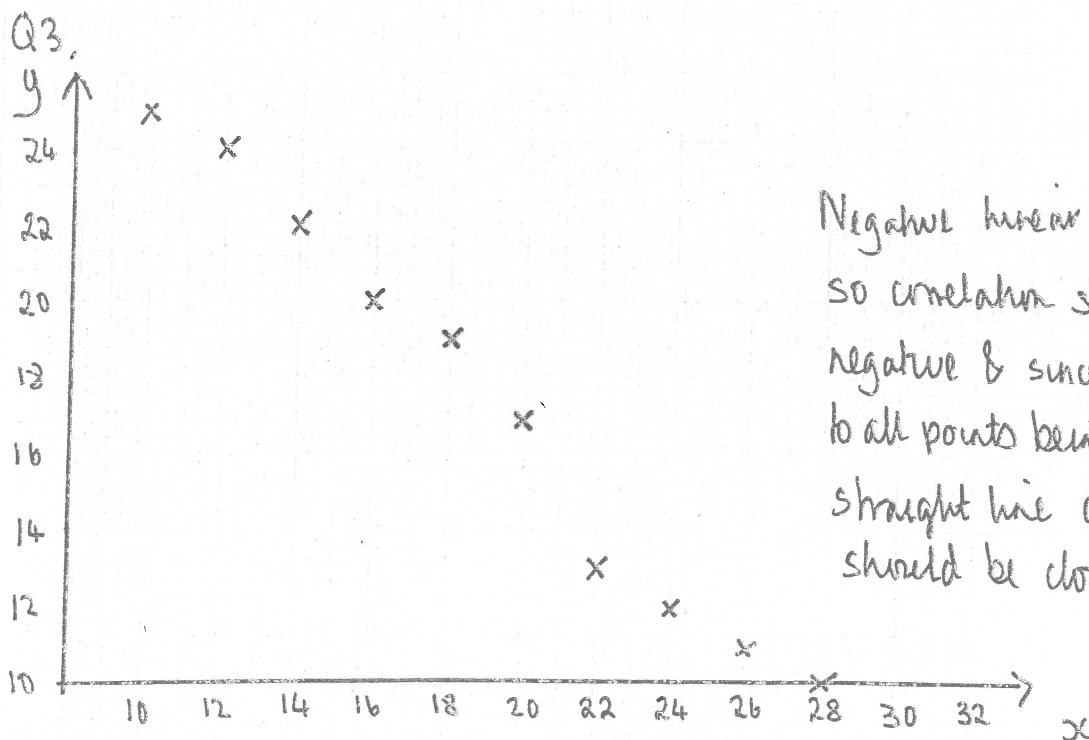 Q3.
y
24
22
20
18
16
14
12
10
10 12 14 16 18 20 22 24 26 28 30 32
x
Negative linear
so correlation s
negative & sinc
to all points bei
straight line
should be clo